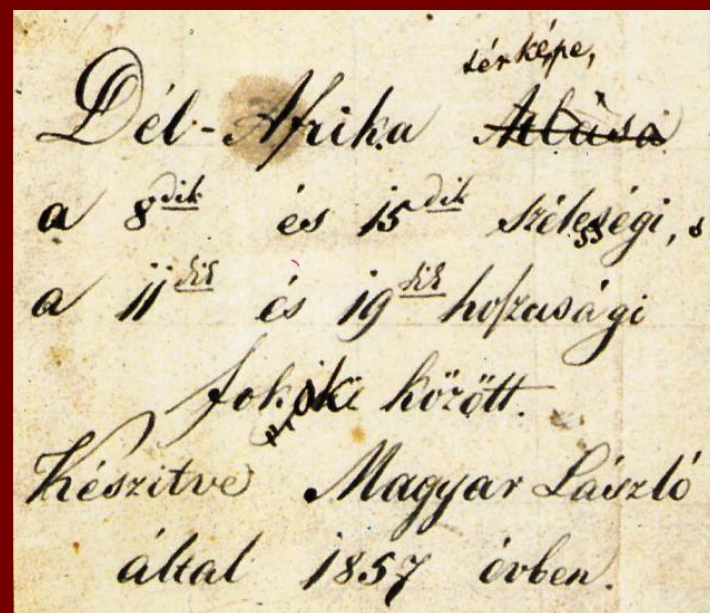 térképe,
Dél-Afrika Atlasa
a 8dik és 15dik szélességi, s
a 11dik és 19dik hoſzusági
fokok között.
Készitve Magyar László
által 1857 évben.